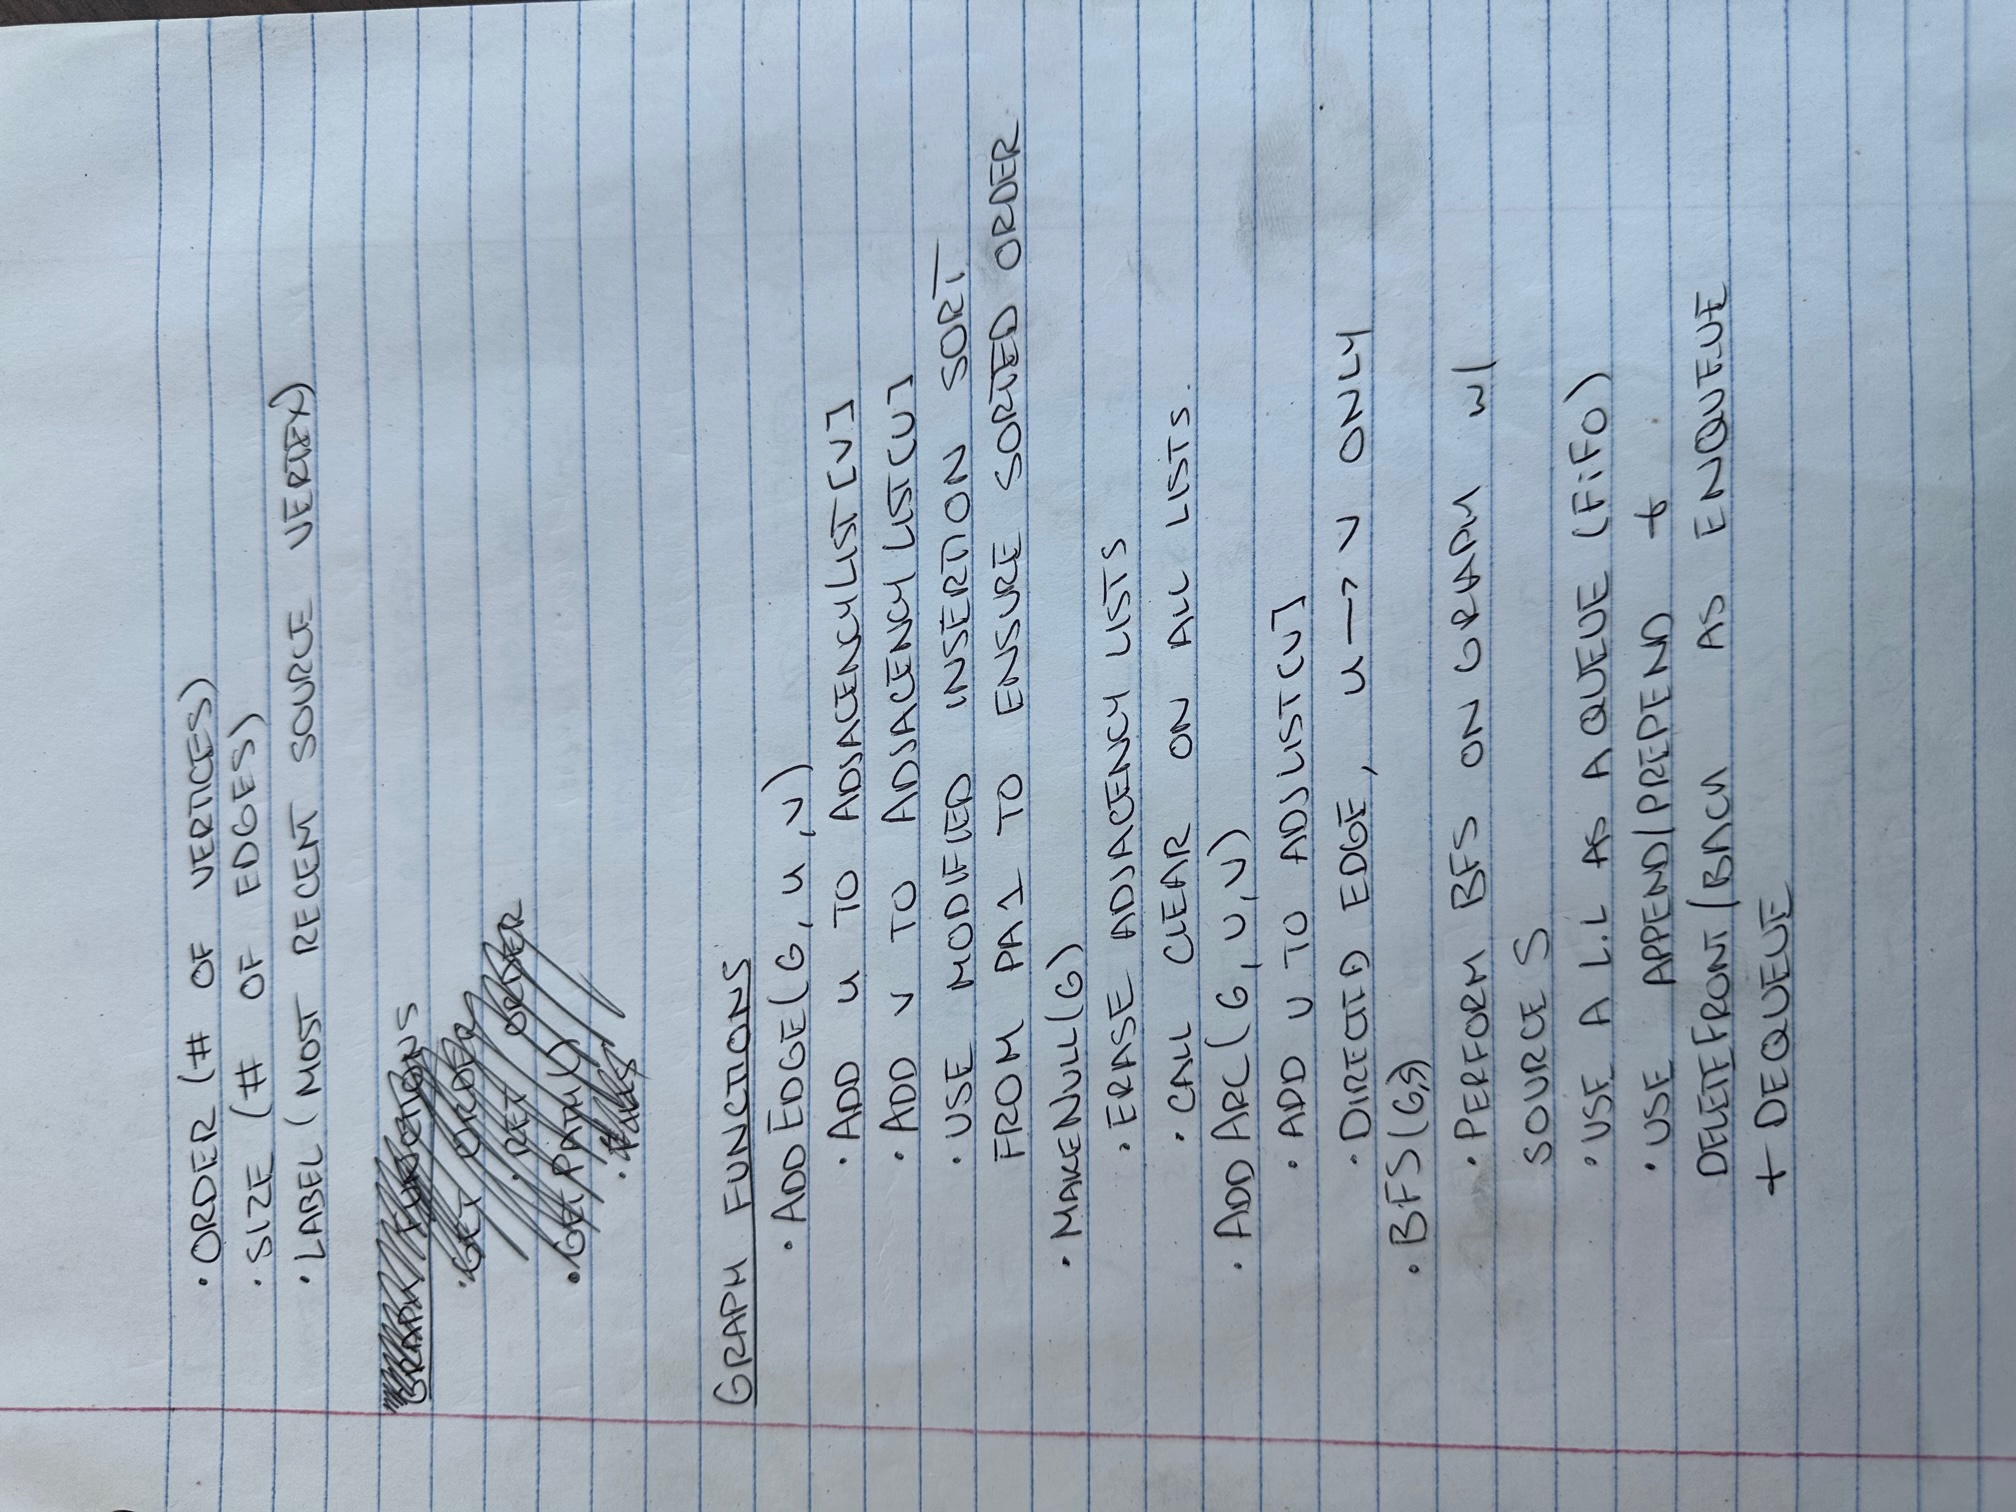 • ORDER (# OF VERTICES)
• SIZE (# OF EDGES)
• LABEL (MOST RECENT SOURCE VERTEX)
GRAPH FUNCTIONS
• GET ORDER
• RET ORDER
• GET PATH()
GRAPH FUNCTIONS
• ADD EDGE(G, u, v)
• ADD u TO ADJACENCYLIST[V]
• ADD V TO ADJACENCY LIST[U]
• USE MODIFIED INSERTION SORT
FROM PA1 TO ENSURE SORTED ORDER
• MAKENULL(G)
• ERASE ADJACENCY LISTS
• CALL CLEAR ON ALL LISTS.
• ADD ARC(G, U, V)
• ADD U TO ADJLIST[V]
• DIRECTED EDGE, u → v ONLY
• BFS(G,S)
• PERFORM BFS ON GRAPH w/
SOURCE S
• USE A L.L AS A QUEUE (FiFO)
• USE APPEND/PREPEND +
DELETEFRONT/BACK AS ENQUEUE
+ DEQUEUE